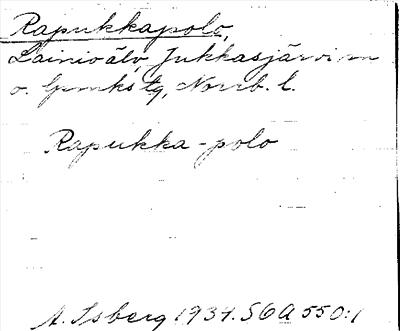 Rapukkapolo,
Lainioälv, Jukkasjärvi sn
o. lpmkstg, Norrb. l.
Rapukka-polo
A. Isberg 1937. SGA 550:1